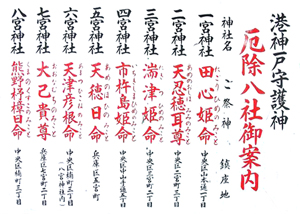 港神戸守護神
厄除八社御案内
神社名 ご祭神 鎮座地
一宮神社 田心姫命 中央区山本通一丁目
二宮神社 天忍穂耳尊 中央区二宮町一丁目
三宮神社 湍津姫命 中央区三宮町二丁目
四宮神社 市杵島姫命 中央区中山手通五丁目
五宮神社 天穂日命 兵庫区五宮町
六宮神社 天津彦根命 中央区楠町三丁目
(八宮神社内)
七宮神社 大己貴尊 兵庫区七宮町二丁目
八宮神社 熊野杼樟日命 中央区楠町三丁目